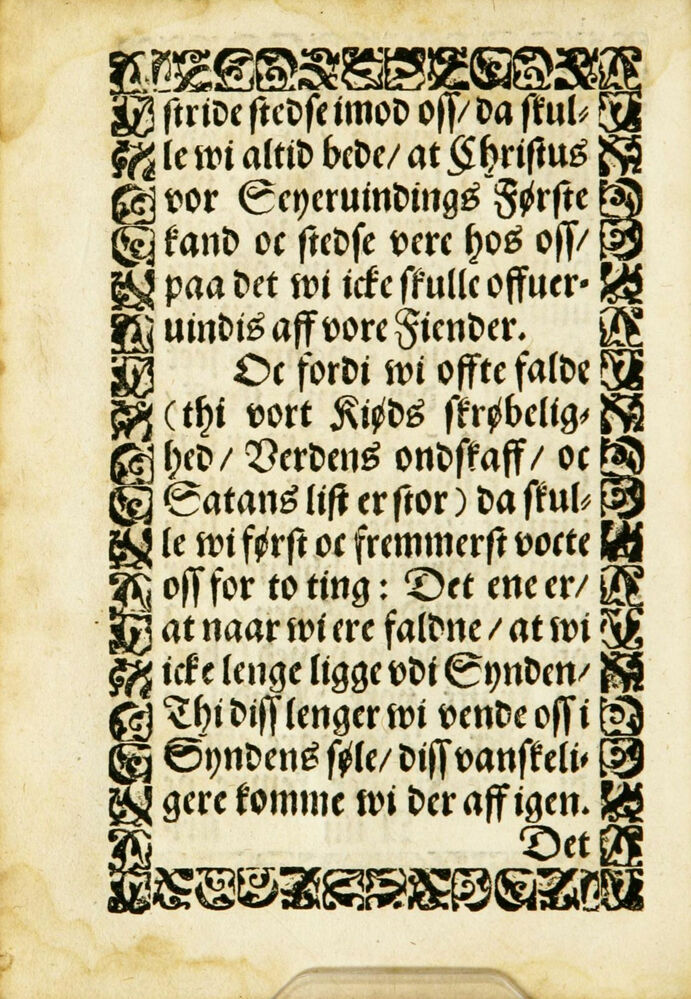 stride stedse imod oss/ da skul-
le wi altid bede/ at Christus
vor Seyeruindings Første
kand oc stedse vere hos oss/
paa det wi icke skulle offuer-
uindis aff vore Fiender.
Oc fordi wi offte falde
(thi vort Kiøds skrøbelig-
hed/ Verdens ondskaff/ oc
Satans list er stor) da skul-
le wi først oc fremmerst vocte
oss for to ting: Det ene er/
at naar wi ere faldne/ at wi
icke lenge ligge vdi Synden/
Thi diss lenger wi vende oss i
Syndens søle/ diss vanskeli-
gere komme wi der aff igen.
Det